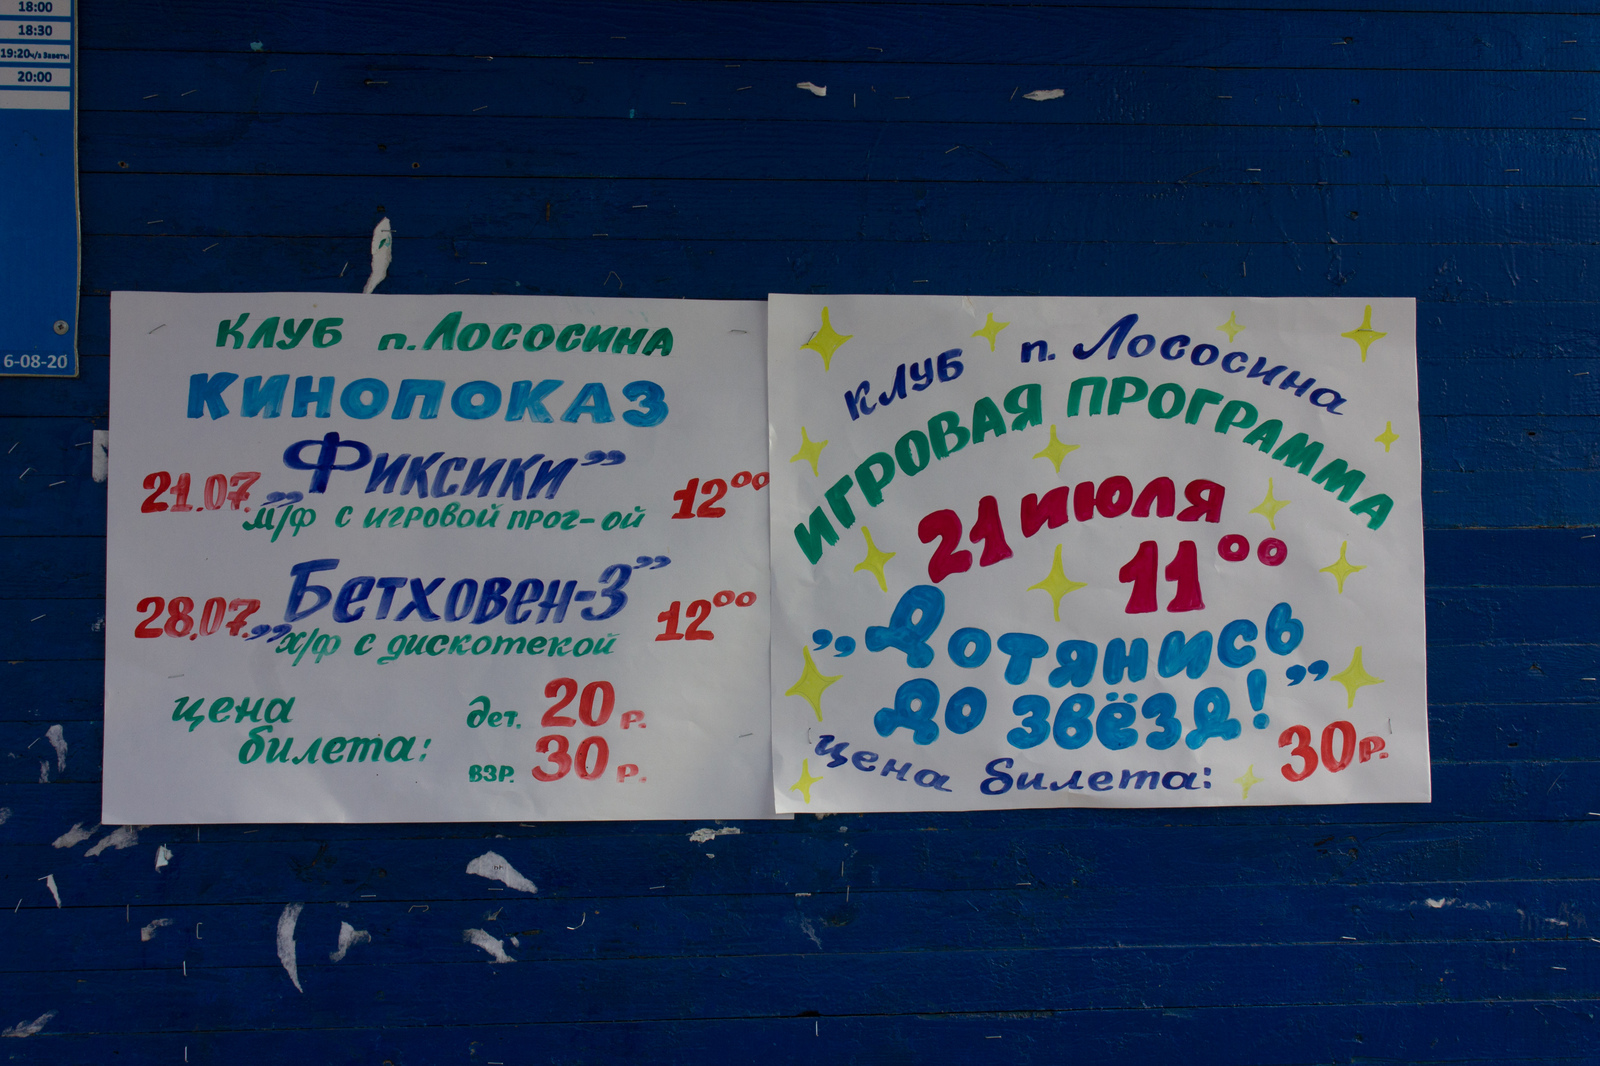 18:00
18:30
19:20 ч/з Заветы
20:00
6-08-20
КЛУБ п. ЛОСОСИНА
КИНОПОКАЗ
21.07. „Фиксики” 12⁰⁰
м/ф с игровой прог-ой
28.07. „Бетховен-3” 12⁰⁰
х/ф с дискотекой
цена
билета:
дет. 20 р.
взр. 30 р.
КЛУБ п. Лососина
ИГРОВАЯ ПРОГРАММА
21 июля
11⁰⁰
„Дотянись
до звёзд!”
цена билета: 30р.